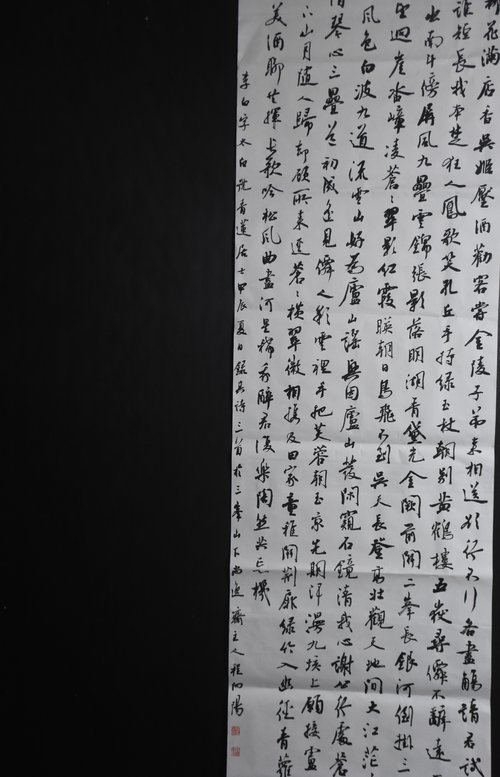 柳花滿店香吳姬壓酒勸客嘗金陵子弟來相送欲行不行各盡觴請君試
誰短長我本楚狂人鳳歌笑孔丘手持綠玉杖朝別黃鶴樓五嶽尋僊不辭遠
出南斗傍屏風九疊雲錦張影落明湖青黛光金闕前開二峯長銀河倒掛三
望迴崖沓嶂凌蒼〻翠影紅霞映朝日鳥飛不到吳天長登高壯觀天地間大江茫
風色白波九道流雪山好為廬山謠興因廬山發閑窺石鏡清我心謝公行處蒼
情琴心三疊道初成遙見僊人彩雲裡手把芙蓉朝玉京先期汗漫九垓上願接盧
下山月隨人歸卻顧所來逕蒼〻橫翠微相攜及田家童稚開荊扉綠竹入幽徑青蘿
美酒聊共揮長歌吟松風曲盡河星稀我醉君復樂陶然共忘機
李白字太白號青蓮居士甲辰夏日錄其詩三首於三峯山下齋主人程向陽